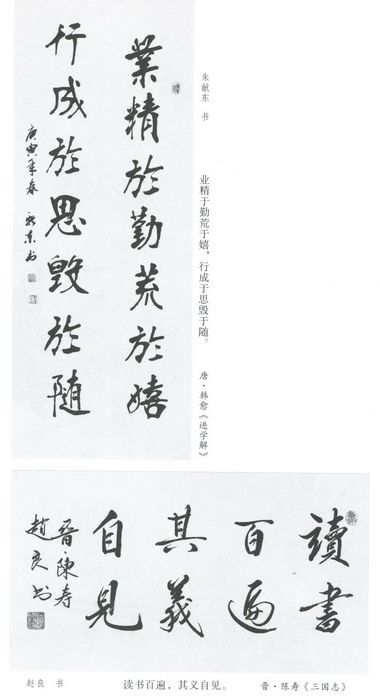 業精於勤荒於嬉
行成於思毀於随
庚寅年春 献東书
朱献东 书
业精于勤荒于嬉，行成于思毁于随。
唐·韩愈《进学解》
讀書
百遍
其義
自見
晋·陳寿
趙良书
赵良 书
读书百遍，其义自见。
晋·陈寿《三国志》